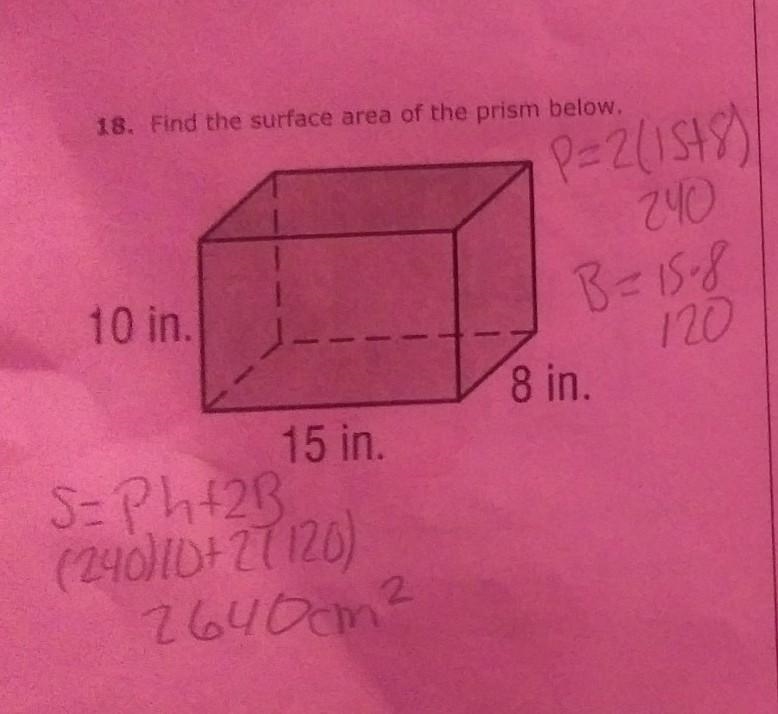 18. Find the surface area of the prism below.
P=2(15+8)
240
B=15·8
120
10 in.
8 in.
15 in.
S=Ph+2B
(240)10+2(120)
2640cm²